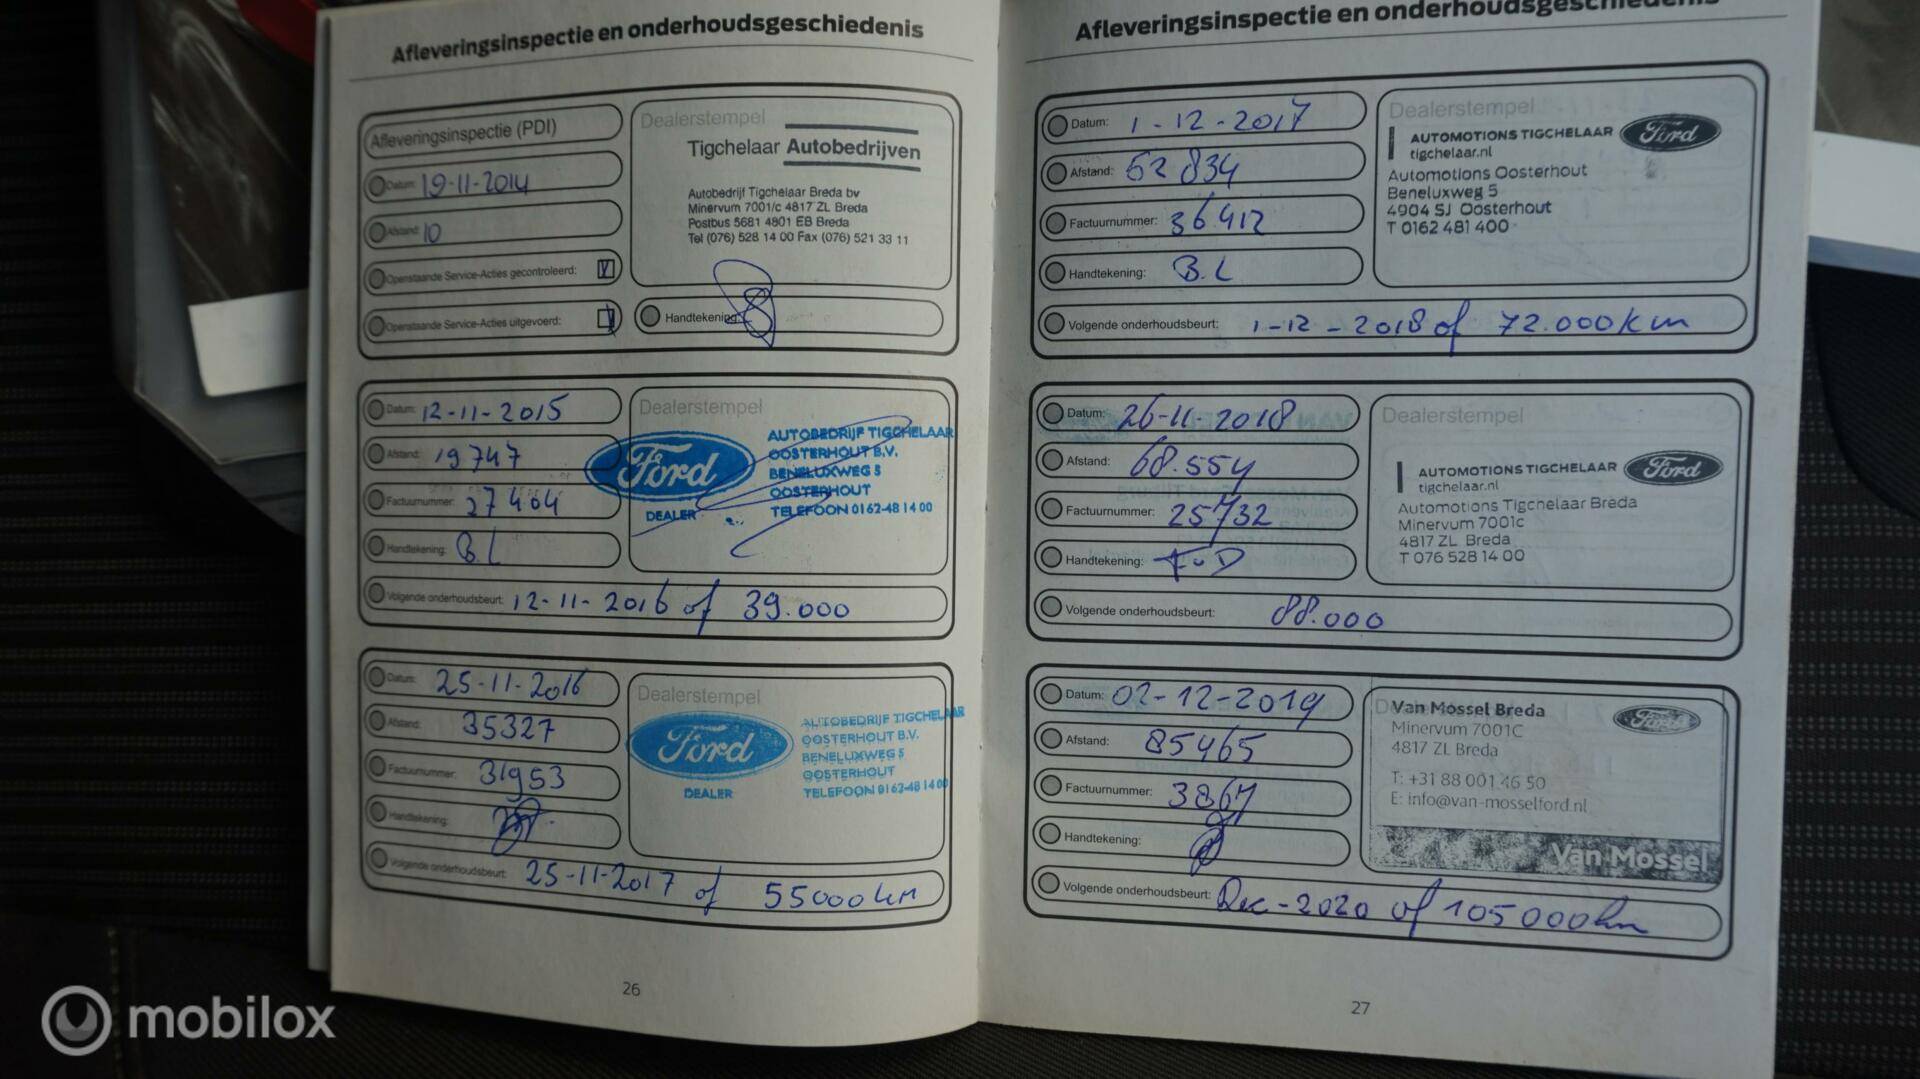 Afleveringsinspectie en onderhoudsgeschiedenis
Afleveringsinspectie (PDI)
Datum: 19-11-2014
Afstand: 10
Openstaande Service-Acties gecontroleerd:
Openstaande Service-Acties uitgevoerd:
Dealerstempel
Tigchelaar Autobedrijven
Autobedrijf Tigchelaar Breda bv
Minervum 7001/c 4817 ZL Breda
Postbus 5681 4801 EB Breda
Tel (076) 528 14 00 Fax (076) 521 33 11
Handtekening:
Datum: 12-11-2015
Afstand: 19747
Factuurnummer: 27464
Handtekening: B.L
Dealerstempel
Ford
DEALER
AUTOBEDRIJF TIGCHELAAR
OOSTERHOUT B.V.
BENELUXWEG 5
OOSTERHOUT
TELEFOON 0162-48 14 00
Volgende onderhoudsbeurt: 12-11-2016 of 39.000
Datum: 25-11-2016
Afstand: 35327
Factuurnummer: 31953
Handtekening:
Dealerstempel
Ford
DEALER
AUTOBEDRIJF TIGCHELAAR
OOSTERHOUT B.V.
BENELUXWEG 5
OOSTERHOUT
TELEFOON 0162-48 14 00
Volgende onderhoudsbeurt: 25-11-2017 of 55000 km
26
Afleveringsinspectie en onderhoudsgeschiedenis
Datum: 1-12-2017
Afstand: 52834
Factuurnummer: 36412
Handtekening: B.L
Dealerstempel
AUTOMOTIONS TIGCHELAAR Ford
tigchelaar.nl
Automotions Oosterhout
Beneluxweg 5
4904 SJ Oosterhout
T 0162 481 400
Volgende onderhoudsbeurt: 1-12-2018 of 72.000 km
Datum: 26-11-2018
Afstand: 68.554
Factuurnummer: 25732
Handtekening: FvD
Dealerstempel
AUTOMOTIONS TIGCHELAAR Ford
tigchelaar.nl
Automotions Tigchelaar Breda
Minervum 7001c
4817 ZL Breda
T 076 528 14 00
Volgende onderhoudsbeurt: 88.000
Datum: 02-12-2019
Afstand: 85465
Factuurnummer: 3867
Handtekening:
Van Mossel Breda Ford
Minervum 7001C
4817 ZL Breda
T: +31 88 001 46 50
E: info@van-mosselford.nl
Van Mossel
Volgende onderhoudsbeurt: Dec-2020 of 105000km
27
mobilox